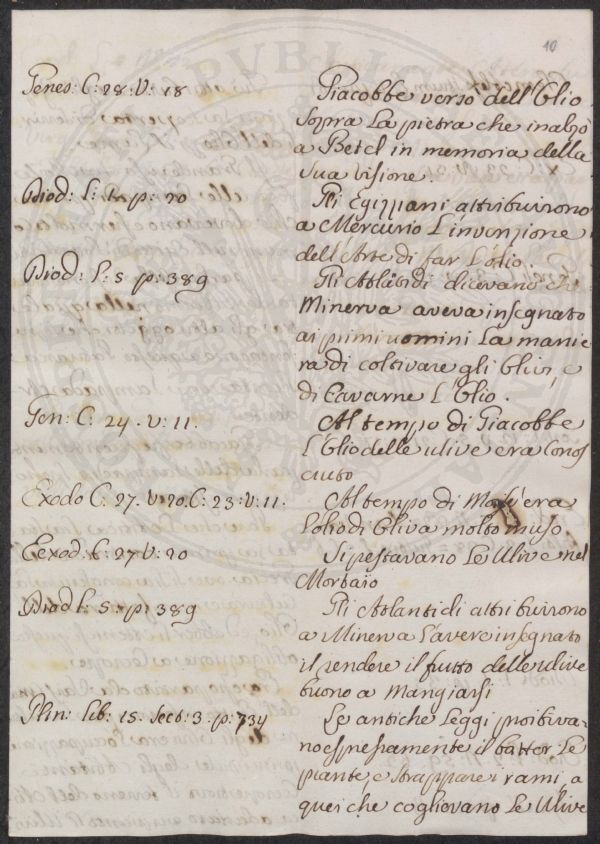 10
Genes: C: 28: V: 18
Giacobbe versò dell'Olio
Sopra La pietra che inalzò
a Betel in memoria della
sua visione.
Diod: l: 1. p: 20
Gli Egizziani attribuirono
a Mercurio L'invenzione
dell'Arte di far L'olio.
Diod: l: 5 p: 389
Gli Atlãtidi dicevano che
Minerva aveva insegnato
ai primi uomini La manie
ra di coltivare gli Olivi, e
di Cavarne L'Olio.
Gen: C: 24. V: 11.
Al tempo di Giacobbe
L'Olio delle ulive era conos
ciuto
Exodo C: 27. V: 20. C: 23: V: 11.
Al tempo di Mosè era
L'olio di Oliva molto in uso
Eexod: C: 27 V: 20
Si pestavano Le Ulive nel
Mortaio
Diod l: 5: p: 389
Gli Atlantidi attribuirono
a Minerva L'avere insegnato
il rendere il frutto dell'ulive
buono a Mangiarsi
Plin: lib: 15. sect: 3. p: 734
Le antiche Leggi proibiva-
no espresamente il batter Le
piante, e strappare i rami, a
quei che coglievano Le Ulive